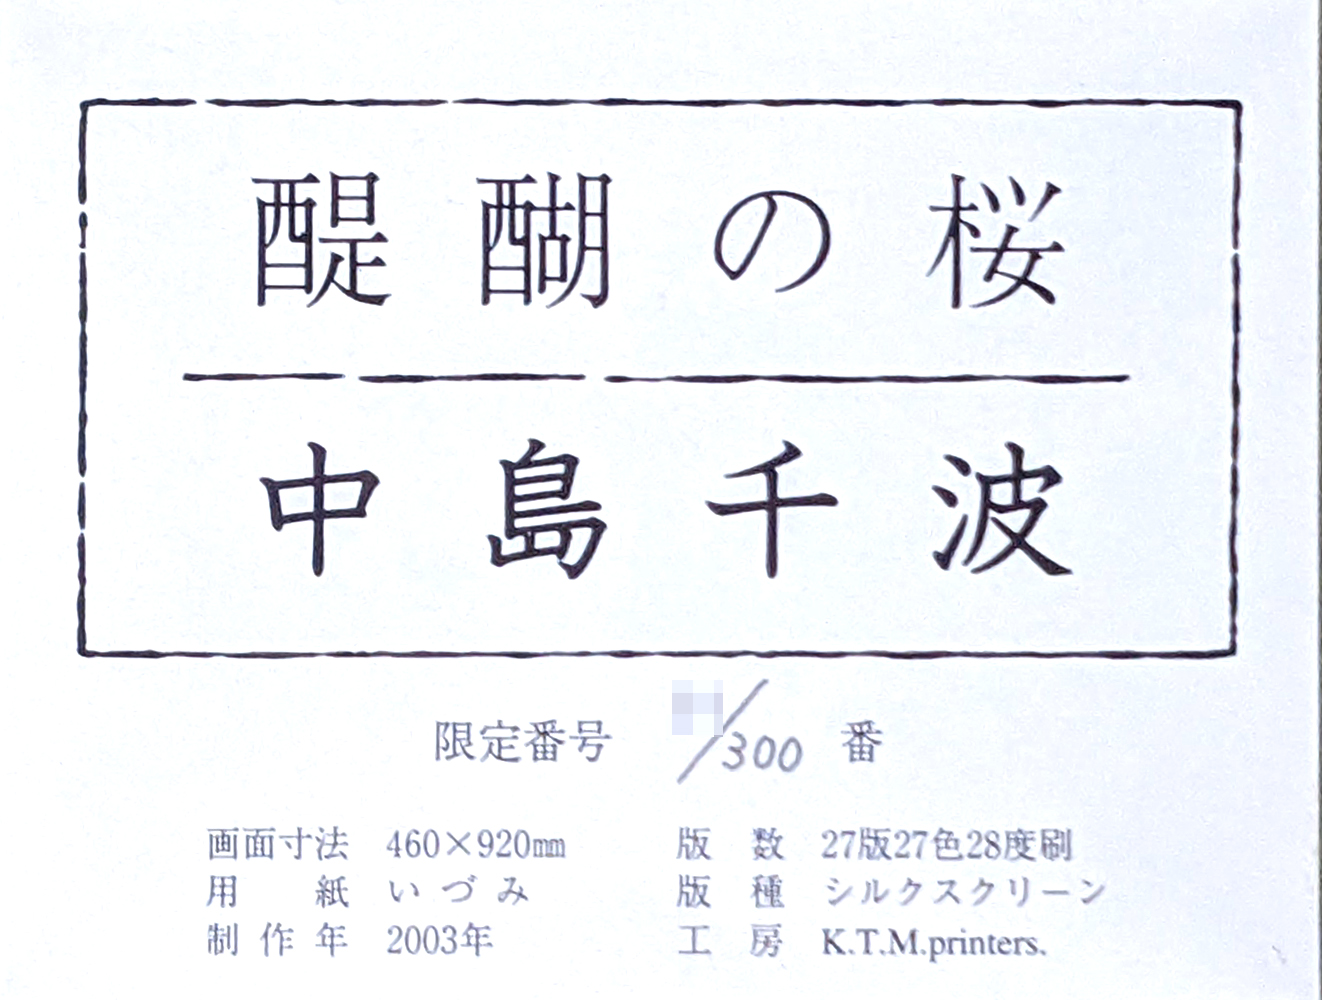 醍醐の桜
中島千波
限定番号 /300 番
画面寸法 460×920㎜ 版数 27版27色28度刷
用紙 いづみ 版種 シルクスクリーン
制作年 2003年 工房 K.T.M.printers.